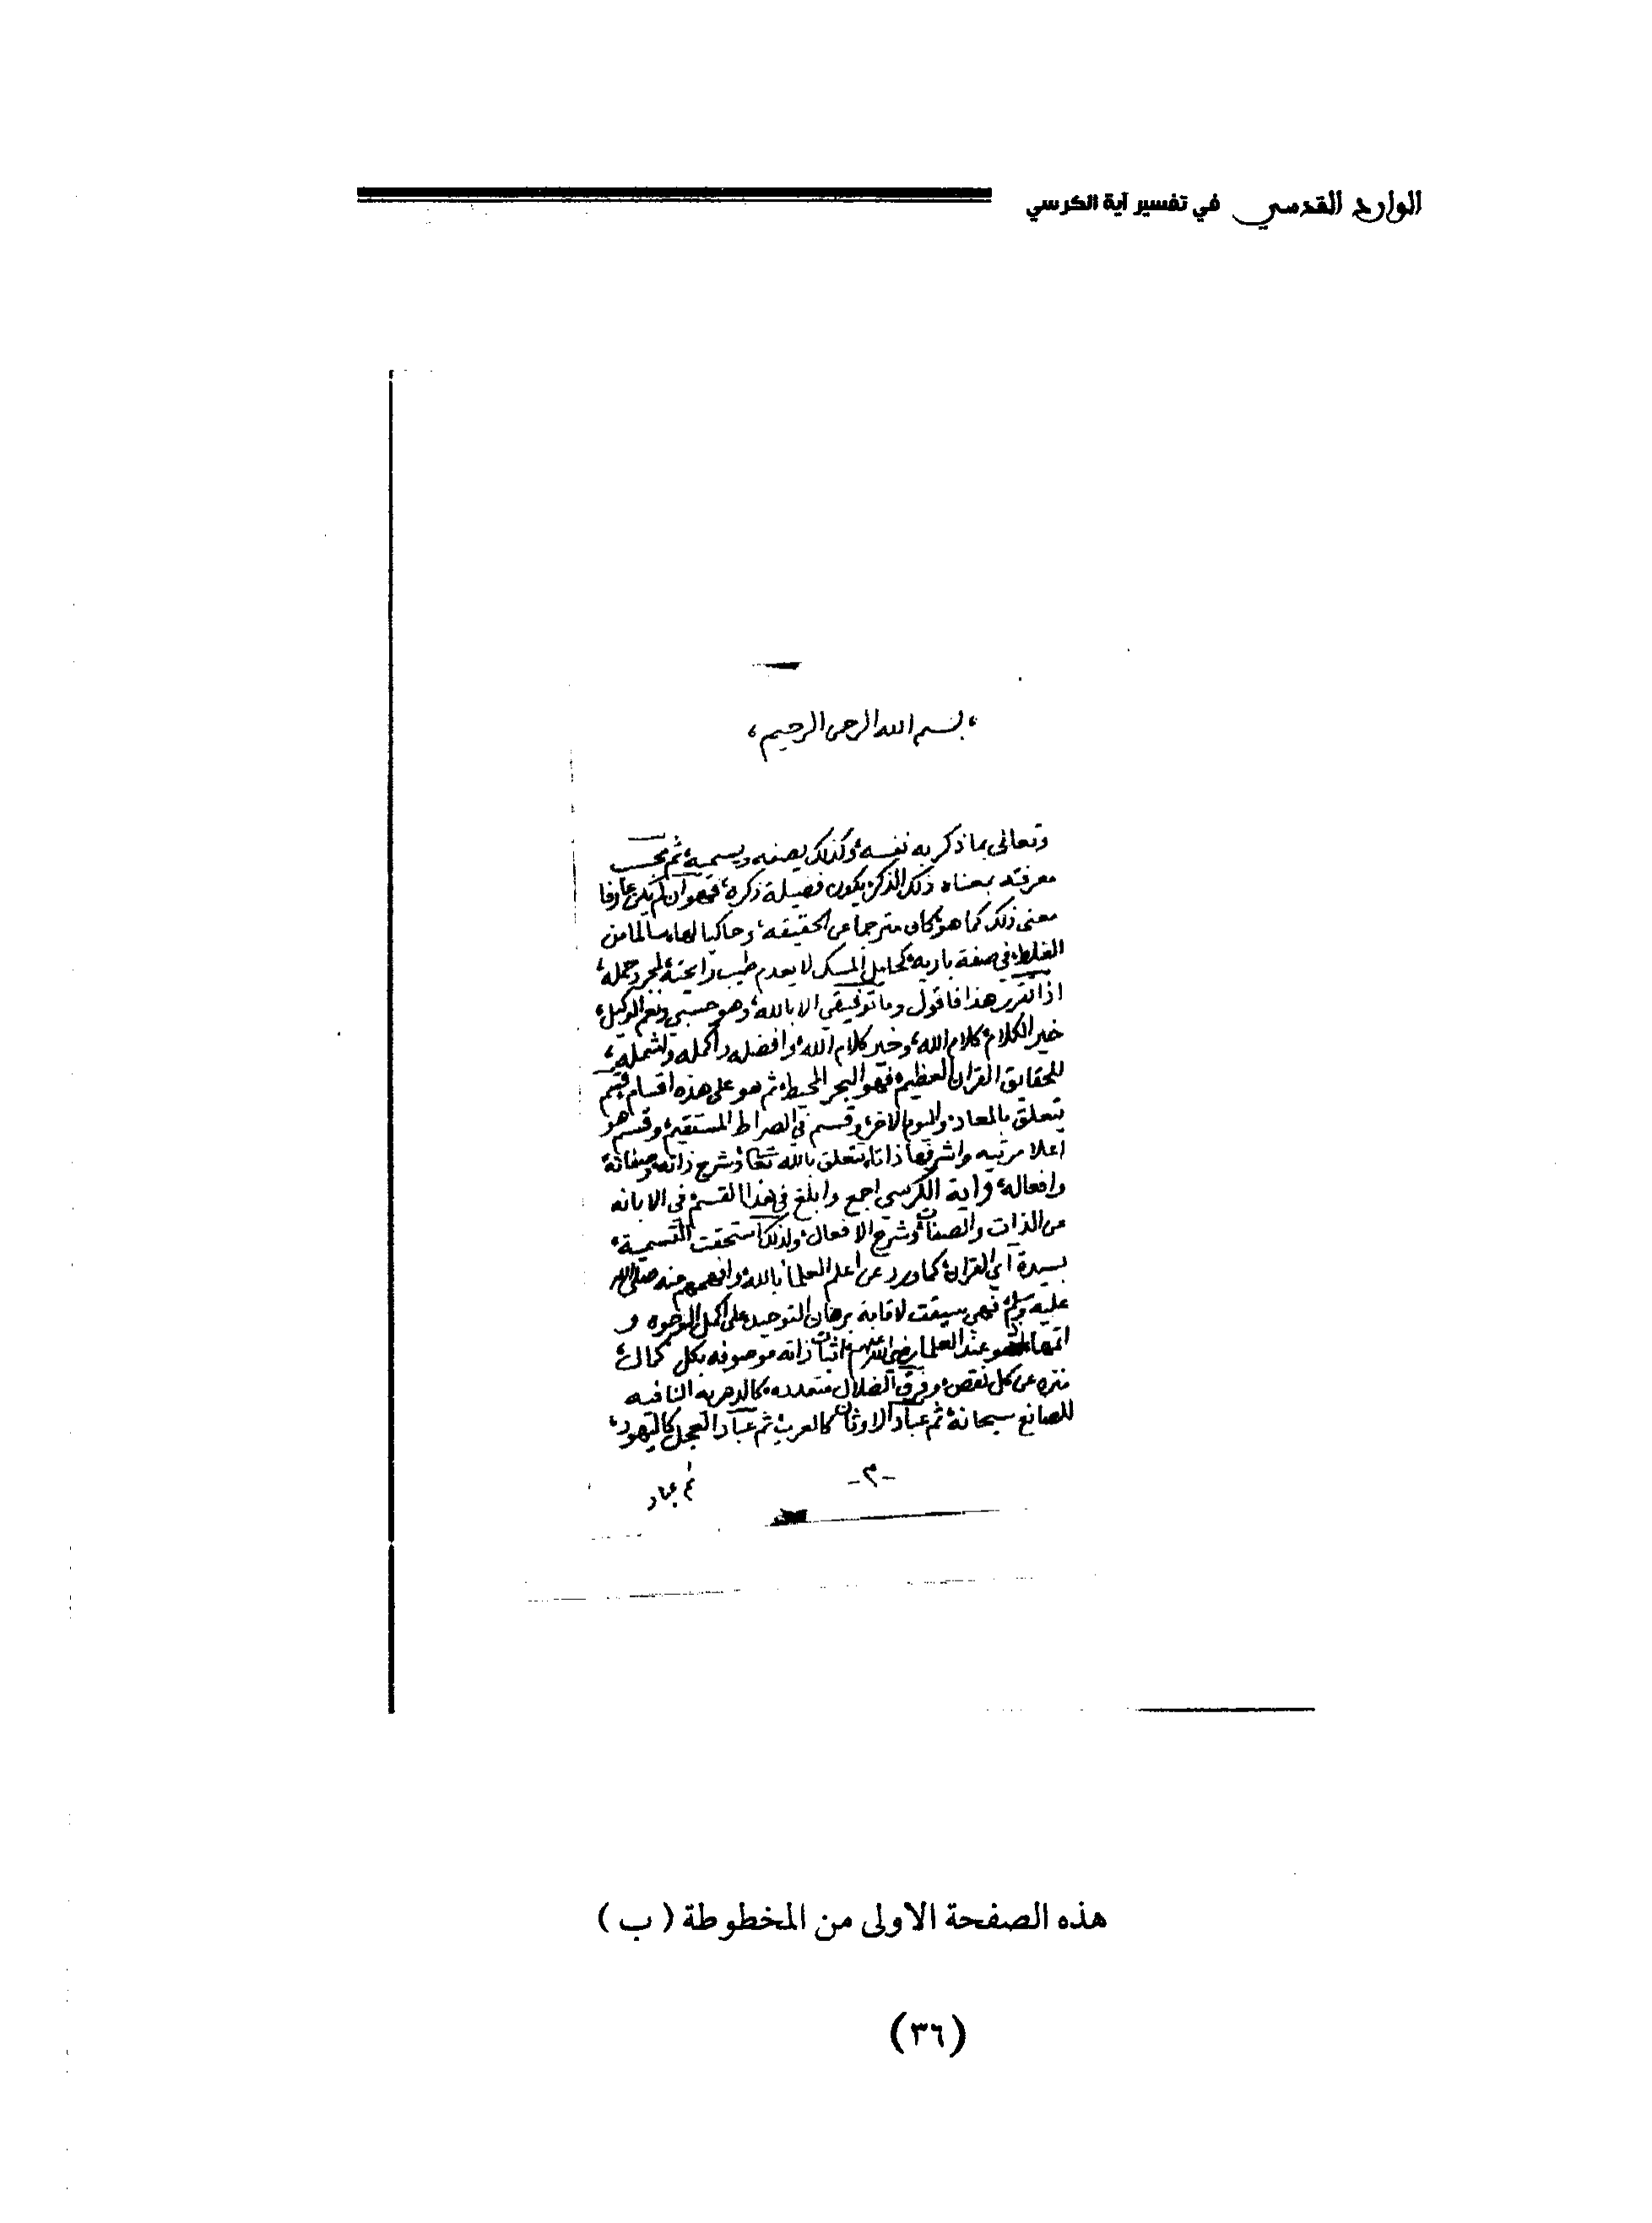 الوارد القدسي في تفسير آية الكرسي
بسم الله الرحمن الرحيم
وتعالى بما ذكر به نفسه وكذلك يصفه ويسميه ثم بحسب
معرفته بمعناه ذلك الذكر يكون فضيلة ذكره فهو ان لم يكن عارفا
معنى ذلك كما هو كان مترجما عن الحقيقه وحاكيا لها سالما من
الغلط في صفة باريه كحامل المسك لا يعدم طيب رائحته لمجرد حمله
اذا تقرر هذا فاقول وما توفيقي الا بالله وهو حسبي ونعم الوكيل
خير الكلام كلام الله وخير كلام الله وافضله واكمله واشمله
للحقايق القران العظيم فهو البحر المحيط ثم هو على هذه اقسام قسم
يتعلق بالمعاد واليوم الاخر وقسم في الصراط المستقيم وقسم هو
اعلا مرتبه واشرفها ذاتا يتعلق بالله تعا وشرح ذاته وصفاته
وافعاله واية الكرسي اجمع وابلغ في هذا القسم في الابانه
عن الذات والصفات وشرح الافعال ولذلك استحقت التسمية
بسيدة آي القران كما ورد عن اعلم العلما بالله وافهمهم عنه صلى الله
عليه وسلم فهي سيقت لاقامة برهان التوحيد على اكمل الوجوه و
اتمها عند العلما رضي الله عنهم اثبات ذاته موصوفه بكل كمال
منزه عن كل نقص وفرق الضلال متعدده كالدهريه النافيه
للصانع سبحانه ثم عباد الاوثان كالعرب ثم عباد العجل كاليهود
-٢-
ثم عباد
هذه الصفحة الاولى من المخطوطة ( ب )
(٣٦)